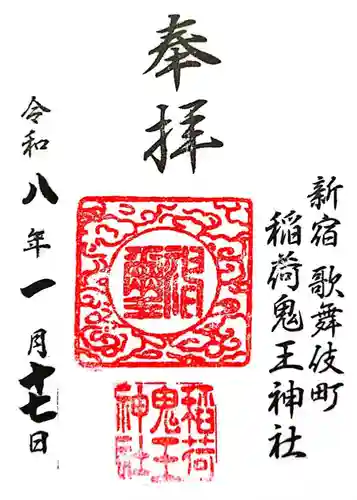 新宿歌舞伎町
稲荷鬼王神社
奉拝
稲荷
鬼王
神社
令和八年一月十七日